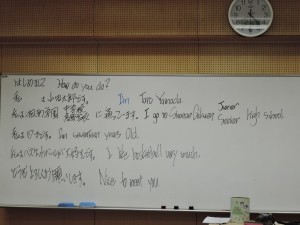 はじめまして How do you do?
私は 山田太郎です。 I'm Taro Yamada.
中学校 Junior
私は 学園 高等学校 に通っています。 I go to Gakuen Senior high school
私は です。 I'm seventeen years old.
私はバスケットボールが大好きです。 I like basketball very much.
どうぞよろしくお願いします。 Nice to meet you